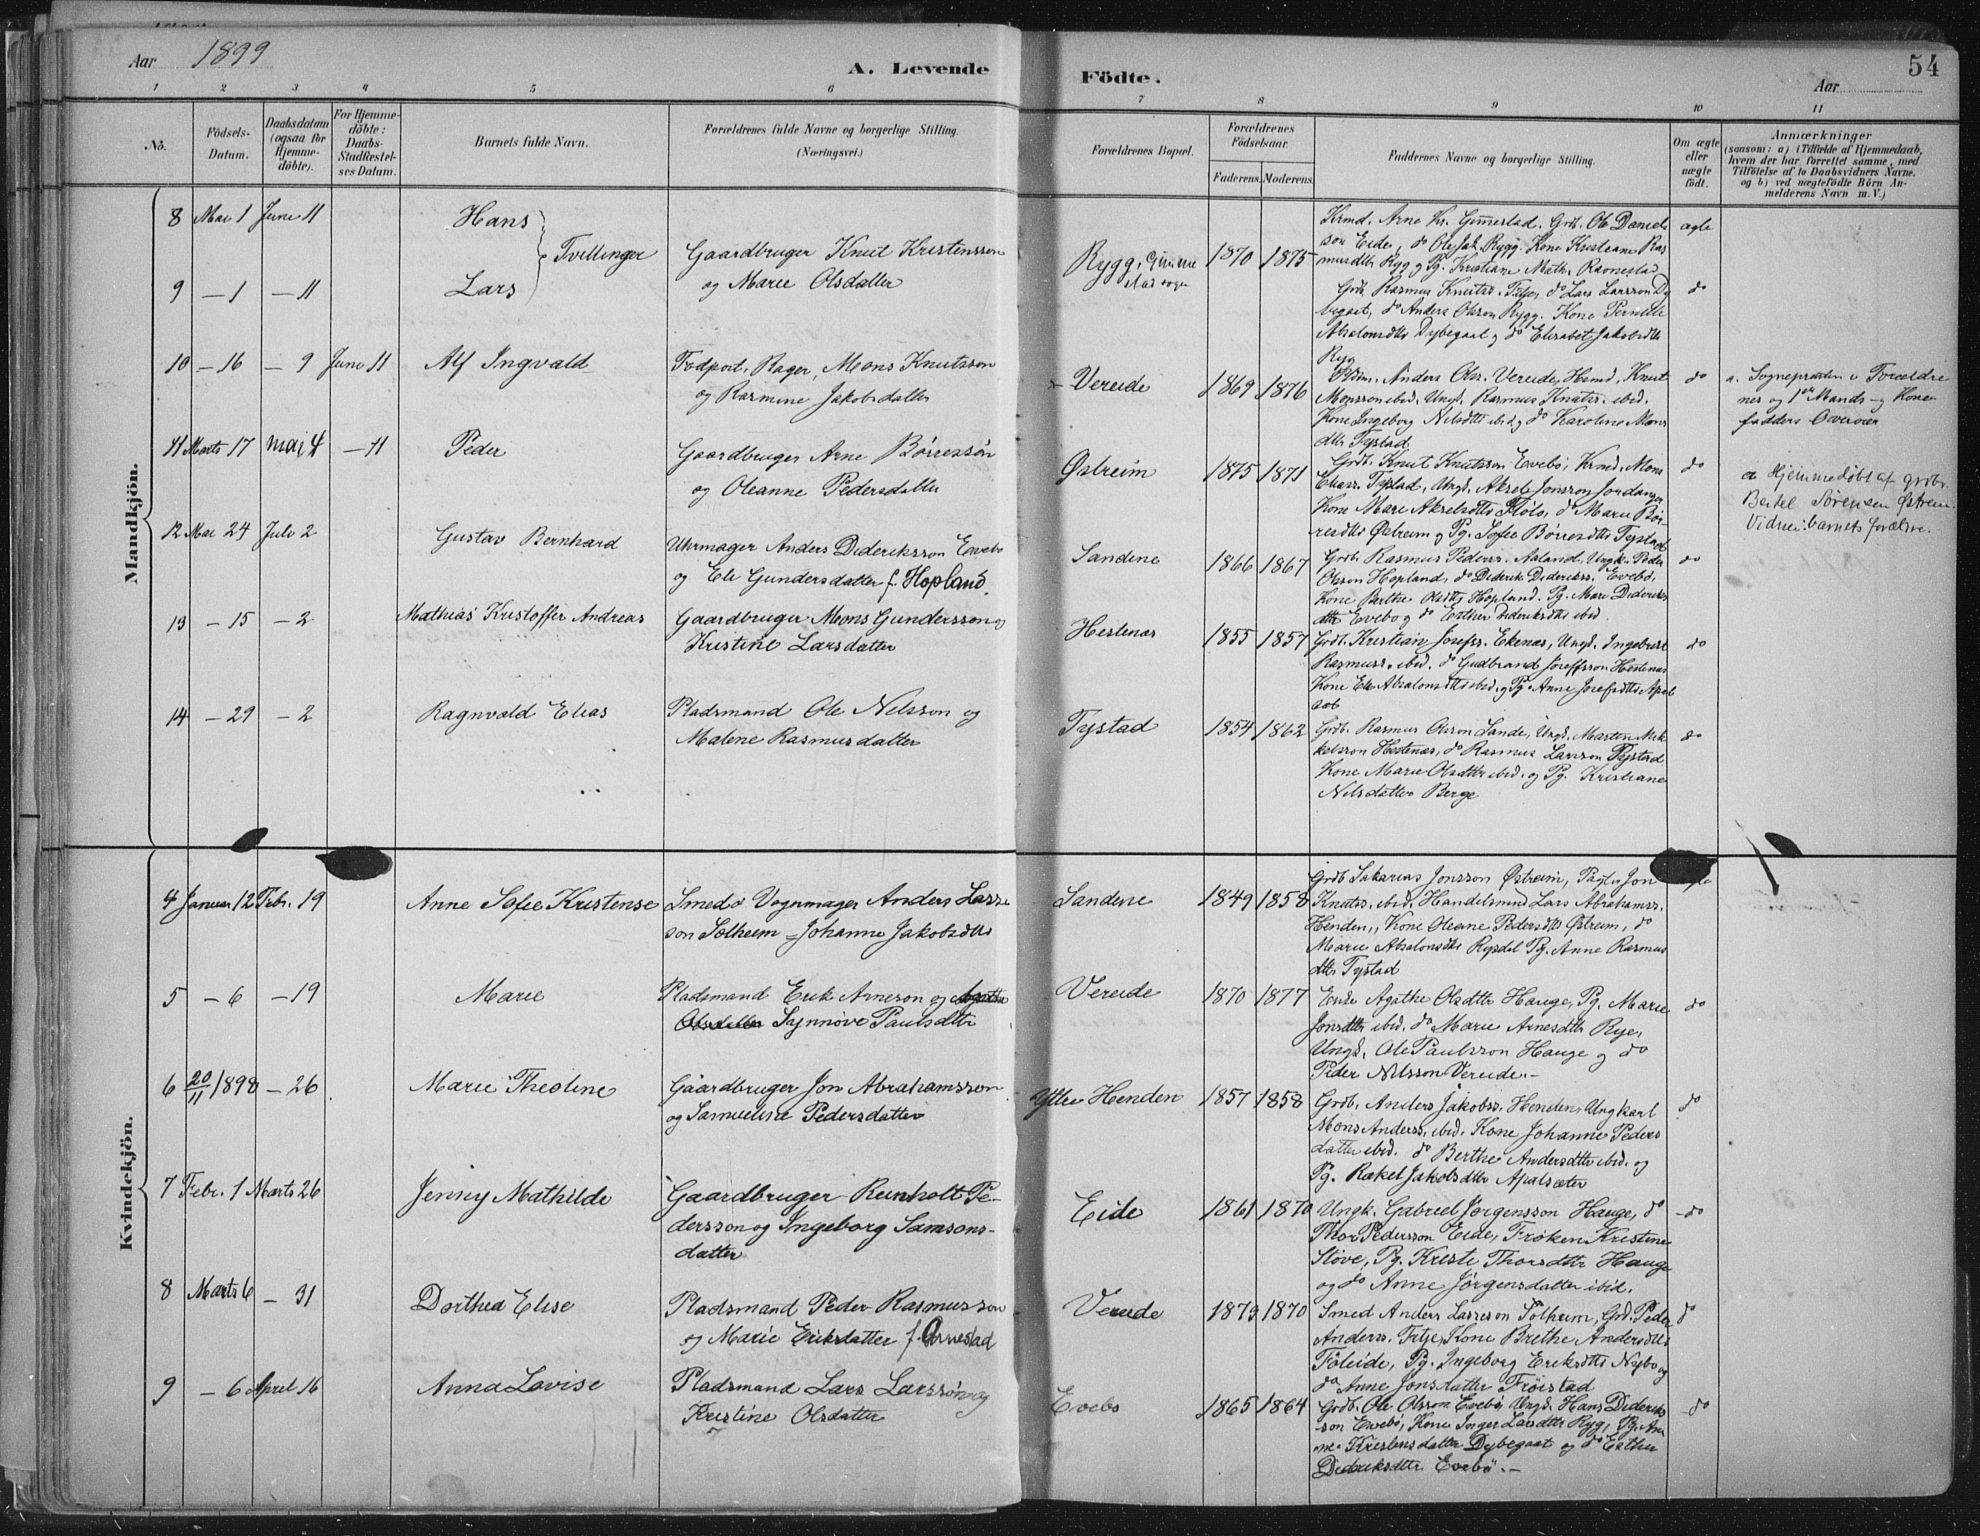 Aar 1899
A. Levende Födte.
54
Aar
1 2 3 4 5 6 7 8 9 10 11
No.
Födsels-Datum.
Daabsdatum (ogsaa for Hjemme-döbte).
For Hjemme-döbte: Daabs-Stadfæstel-ses Datum.
Barnets fulde Navn.
Forældrenes fulde Navne og borgerlige Stilling.
(Næringsvei.)
Forældrenes Bopæl.
Forældrenes Födselsaar.
Faderens. Moderens.
Faddernes Navne og borgerlige Stilling.
Om ægte eller uægte födt.
Anmærkninger
(saasom: a) i Tilfælde af Hjemmedaab, hvem der har forrettet samme, med Tilföielse af to Daabsvidners Navne, og b) ved uægtefödte Börn An-melderens Navn m. V.)
Mandkjön.
8 Mai 1 Juni 11 Hans
Tvillinger
Gaardbruger Knut Kristensson
og Marie Olsdatter
Rygg, Gimmestad sogn
1870 1875
Krmd. Arne Kr. Gimmestad. Grdb. Ole Daniels
son Eide, do Ole Jak. Rygg. Kone Kristiane Ras
musdtr Ryg og Pg. Kristiane Math. Ravnestad
ægte
9 — 1 — 11 Lars
Grdb. Rasmus Knuts. Fitje, do Lars Larsson Dy
begaet, do Anders Olsson Rygg. Kone Pernille
Absalonsdtr Dybegaal og do Elisabet Jakobsdtr
Ryg
do
10 — 16 — 9 Juni 11 Alf Ingvald
Fodpost, Bager, Mons Knutsson
og Rasmine Jakobsdatter
Vereide
1869 1876
Pldm. Anders Ols. Vereide, Hemd. Knut
Monsson ibid. Ungk. Rasmus Knuts. ibid.
Kone Ingeborg Nilsdtr ibid og do Karoline Mons
dtr Tystad
do
a. Sognepræsten i Forældre
nes og 1ste Mands- og Kone
fadders Overvær
11 Marts 17 Mai 4 — 11 Peder
Gaardbruger Arne Börresson
og Oleanne Pedersdatter
Østreim
1875 1871
Grdb. Knut Knutsson Evebö, Krmd. Mons
Eliass. Tystad, Ungk. Aksel Jonsson Jordanger
Kone Mari Akselsdtr Flölo, do Marie Bör-
resdtr Østreim og Pg. Sofie Börresdtr Tystad
do
a Hjemmedöbt af grdbr.
Bertel Sörensen Østreim.
Vidner: barnets forældre.
12 Mai 24 Juli 2 Gustav Bernhard
Uhrmager Anders Dideriksson Evebö
og Eli Gundersdatter f. Hopland.
Sandene
1866 1867
Grdb. Rasmus Peders. Aaland, Ungk. Peder
Olsson Hopland, do Diderik Dideriks. Evebö,
Kone Berthe Olsdtr Hopland. Pg. Mari Dideriks
dtr Evebö og do Esther Dideriksdtr ibid.
do
13 — 15 — 2 Mathias Kristoffer Andreas
Gaardbruger Mons Gundersson og
Kristine Larsdatter
Hestenæs
1855 1857
Grdb. Kristian Josefs. Ekenæs, Ungk. Ingebrigt
Rasmuss. ibid. do Gudbrand Joseffsson Hestenæs
Kone Eli Absalonsdtr ibid. og Pg. Anne Josefsdtr Apal
sæt
do
14 — 29 — 2 Ragnvald Elias
Pladsmand Ole Nelsson og
Malene Rasmusdatter
Tystad
1854 1862
Grdb. Rasmus Olsson Sande, Ungk. Marten Mik
kelsson Hestenæs, do Rasmus Larsson Tystad
Kone Marie Olsdtr ibid. og Pg. Kristiane
Nelsdatter Berge
do
Kvindekjön.
4 Januar 12 Febr. 19 Anne Sofie Kristense
Smed & Vognmager Anders Lasse
son Solheim - Johanne Jakobsdtr
Sandene
1849 1858
Grdb. Sakarias Jonsson Østreim, Pagter Jon
Knuts. ibid. Handelsmnd Lars Abrahamss.
Henden, Kone Oleane Pedersdtr Østreim, do
Marie Absalonsdtr Rysdal Pg. Anne Rasmus
dtr Tystad
ægte
5 — 6 — 19 Marie
Pladsmand Erik Arneson og Agathe
Olsdatter Synnöve Paulsdtr
Vereide
1870 1877
Enke Agathe Olsdtr Hauge, Pg. Marie
Jonsdtr ibid. do Marie Arnesdtr Rye,
Ungk. Ole Paulsson Hauge og do
Peder Nilsson Vereide.—
do
6 20/11 1898 — 26 Marie Theoline
Gaardbruger Jon Abrahamsson
og Samueline Pedersdatter
Yttre Henden
1857 1858
Grdb. Anders Jakobss. Henden, Ungkarl
Mons Anderss. ibid. Kone Johanne Peders
datter ibid. do Berthe Andersdtr ibid. og
Pg. Rakel Jakobsdtr Apalsæter
do
7 Febr. 1 Marts 26 Jenny Mathilde
Gaardbruger Reinholt Pe-
dersson og Ingeborg Samsons-
datter
Eide
1861 1870
Ungk. Gabriel Jörgensson Hauge, do
Thor Pedersson Eide, Fröken Kristine
Stöve, Pg. Kristi Thorsdtr Hauge
og do Anne Jörgensdatter ibid.
do
8 Marts 6 — 31 Dorthea Elise
Pladsmand Peder Rasmusson
og Marie Eriksdatter f. Arnestad
Vereide
1879 1870
Smed Anders Lasseson Solheim, Grd. Peder
Anderss. Fitje, Kone Brethe Andersdtr
Föleide, Pg. Ingeborg Eriksdtr Nybo og
do Anne Jonsdatter Fröistad
do
9 — 6 April 16 Anna Lovise
Pladsmand Lars Larsson og
Kristine Olsdatter
Evebö
1865 1864
Grdb. Ole Olsson Evebö, Ungk. Hans Dideriks
son Evebö, Kone Inger Larsdtr Ryg, Pg. An
ne Kristensdatter Dybegaat og do Esther
Dideriksdtr Evebö.—
do